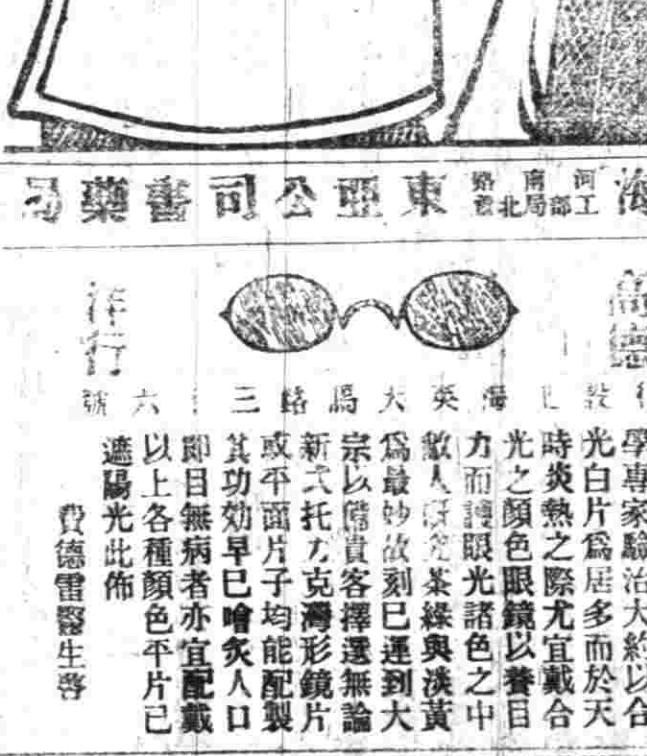 海
河工部
南局北
路首
東亞公司書藥局
洋行
海英大馬路三
六號
學專家驗治大約以合
光白片爲居多而於天
時炎熱之際尤宜戴合
光之顏色眼鏡以養目
力而護眼光諸色之中
敝人研究茶綠與淡黃
爲最妙故刻已運到大
宗以備貴客擇選無論
新式托力克灣形鏡片
或平面片子均能配製
其功効早已噲炙人口
即目無病者亦宜配戴
以上各種顏色平片已
遮陽光此佈
費德雷醫生啓